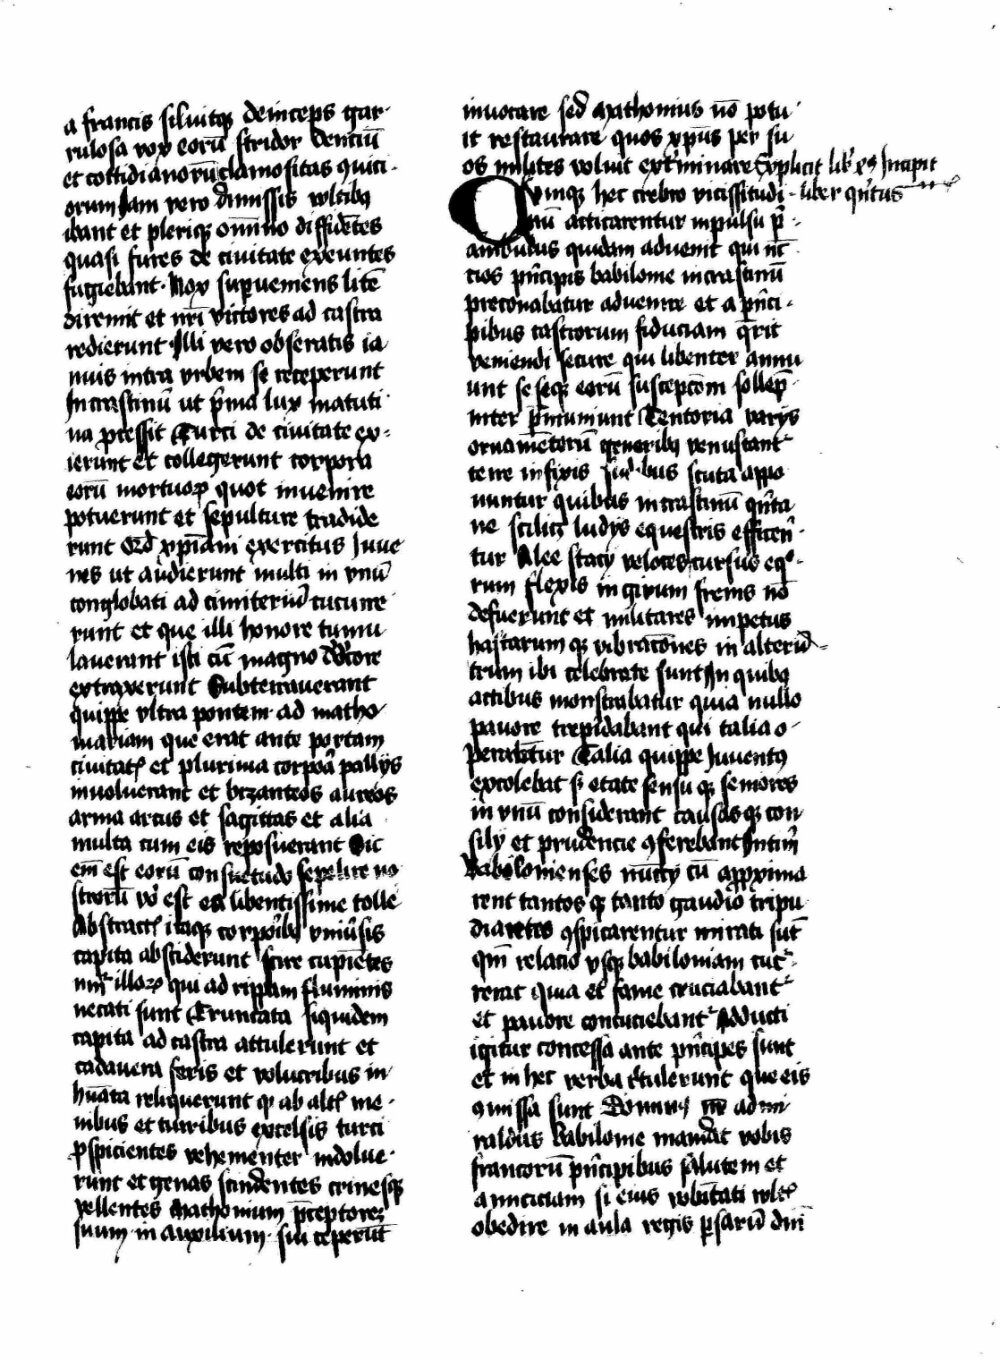 a francis siluitqꝫ deinceps gar-
rulosa vox eorū stridor dentiū
et cottidianorū clamositas quici-
orum Jam vero dimissis vultibꝰ
ibant et pleriqꝫ om̄ino diffidētes
quasi fures de ciuitate exeuntes
fugiebant. Nox supueniens litē
diremit et nr̄i victores ad castra
redierunt Illi vero obseratis ia
nuis intra vrbem se receperunt
In crastinū ut p̄ma lux matuti
na processit Turci de ciuitate ex-
ierunt et collegerunt corpora
eorū mortuoꝝ quot inuenire
potuerunt et sepulture tradide
runt Qd̄ xp̄iani exercitus Juue
nes ut audierunt multi in vnū
conglobati ad cimiteriū cucurre
runt et que illi honore tumu
lauerant isti cū magno dedecore
extraxerunt Subterrauerant
quippe vltra pontem ad matho
mariam que erat ante portam
ciuitatꝭ et plurima corpora pallijs
inuoluerant et bizanteos aureos
arma arcus et sagittas et alia
multa cum eis reposuerant Sic
em̄ est eorū consuetudo sepelire no
strorū vo est ea libentissime tolle
Abstractꝭ itaqꝫ corporibꝰ vniusis
capita absciderunt scire cupiētes
nūer illoꝝ qui ad rippam fluminis
necati sunt Truncata siquidem
capita ad castra attulerunt et
cadauera feris et volucribus in
hūata reliquerunt qd ab altꝭ me-
nibus et turribus excelsis turci
ꝓspicientes vehementer indolue-
runt et genas scindentes crinesqꝫ
vellentes Mathomum p̄ceptorez
suum in auxilium sui ceperūt
inuocare sed Mathomus nō potu-
it restaurare quos xp̄us per su
os milites voluit ext̓minare Explicit lib̓ Incipit
liber qn̄tus
Quinqꝫ hec crebro vicissitudi-
nū actitarentur inpulsu p̄-
ambulus quidam aduenit qui nūc
cios p̄ncipis babilonie in crastinū
preconabatur aduenire et a p̄nci-
pibus castrorum fiduciam q̄rit
veniendi secure qui libenter annu
unt se seqꝫ eorū susceptōm sollep̄
niter p̄muniunt Tentoria varijs
ornamētorū generibꝰ venustantᷣ
terre infixis sudibus scuta appo
nuntur quibus in crastinū qn̄ta
ne scilicꝫ ludꝰ equestris efficerē
tur Alee stacij veloces cursus eqͦ-
rum flexis in girum frenis nō
defuerunt et militares impetus
hastarum qꝫ vibratōnes in alterū-
trum ibi celebrate sunt In quibꝰ
actibus monstrabatur quia nullo
pauore trepidabant qui talia o-
perabātur Talia quippe Juuentꝰ
excolebat sꝫ etate sensu qꝫ seniores
in vnū considerant causas qꝫ con
silij et prudencie ꝯferebant Intim̄
Babilonienses nūcij cū appxima
rent tantos qꝫ tanto gaudio tripu
diantes ꝯspicarentur mirati sūt
qm̄ relacio vsqꝫ babiloniam cucᷣ-
rerat quia et fame cruciabantᷣ
et pauore concuciebantᷣ Adducti
igitur concessa ante p̄ncipes sunt
et in hec verba rꝭtulerunt que eis
ꝯmissa sunt Domiꝰ nr̄ admi
raldus Babilonie mandat vobis
francorū p̄ncipibus salutem et
amiciciam si eius volūtati vultꝭ
obedire in aula regis ꝑsarū dn̄i